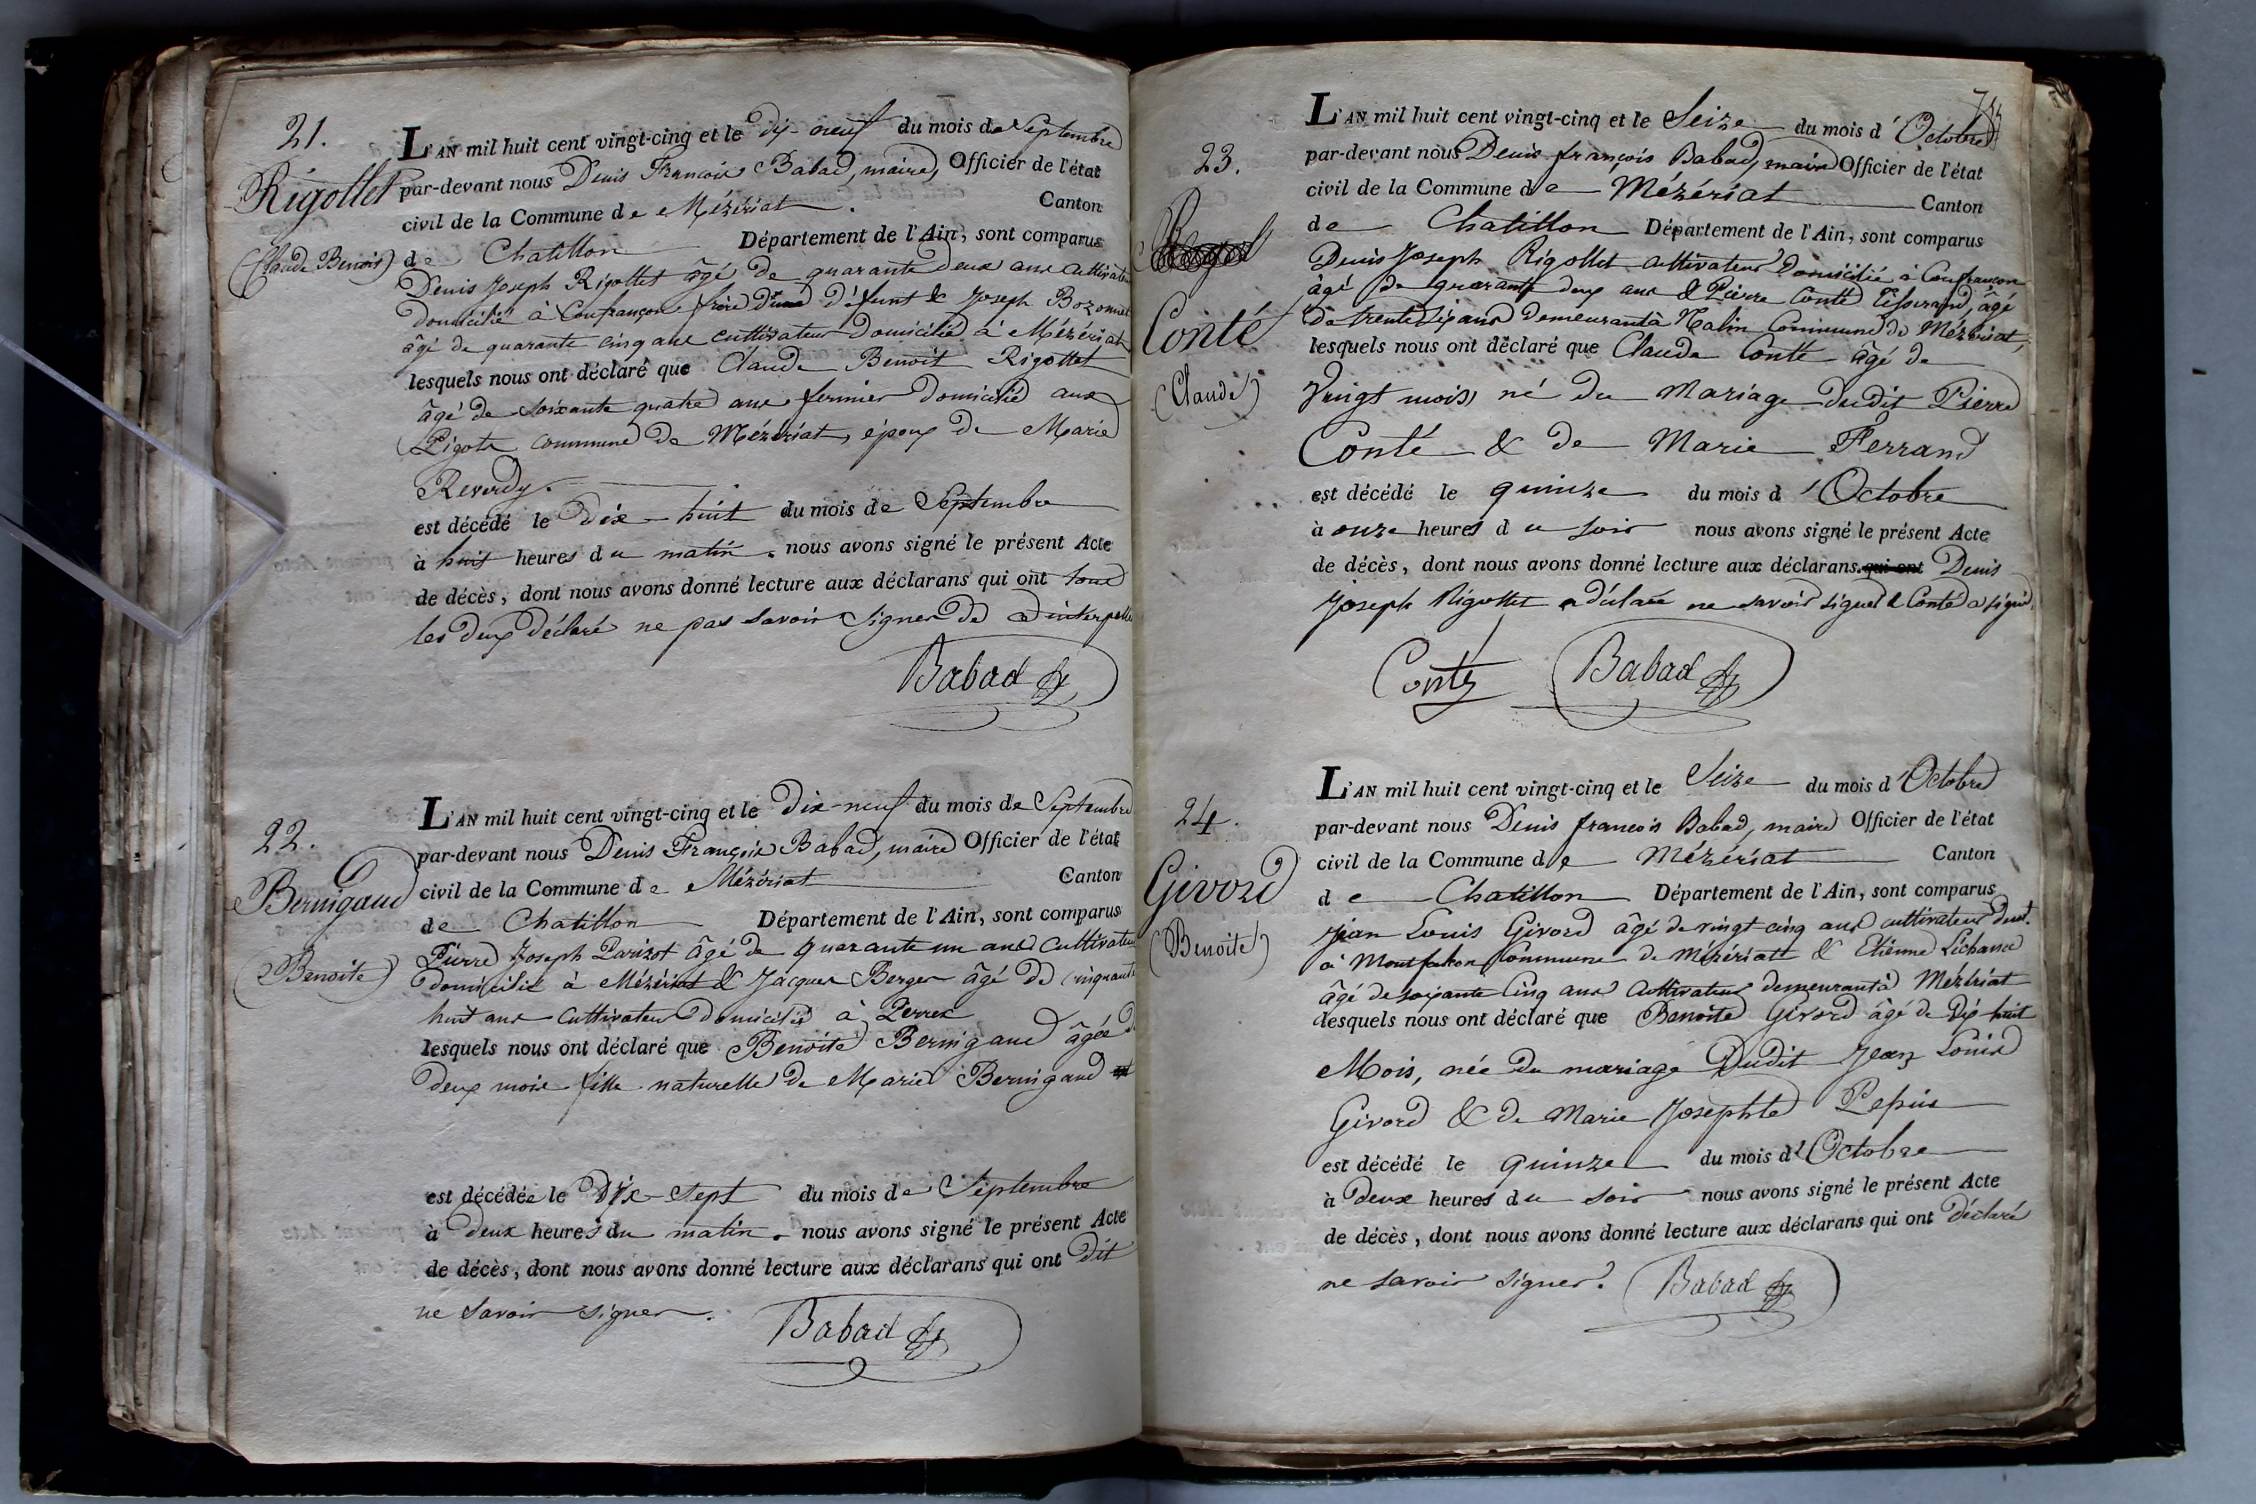 21.
Rigollet
(Claude Benoit)
L'AN mil huit cent vingt-cinq et le dix-neuf du mois de Septembre
par-devant nous Denis François Babad, maire, Officier de l'état
civil de la Commune de Mézériat. Canton
de Chatillon Département de l'Ain, sont comparus
Denis Joseph Rigollet âgé de quarante deux ans cultivateur
domicilié à Confrançon frère du défunt & Joseph Bozonnet
âgé de quarante cinq ans cultivateur domicilié à Mézériat
lesquels nous ont déclaré que Claude Benoit Rigollet
âgé de soixante quatre ans fermier domicilié aux
Pigots commune de Mézériat, époux de Marie
Reverdy.
est décédé le dix-huit du mois de Septembre
à huit heures du matin. nous avons signé le présent Acte
de décès, dont nous avons donné lecture aux déclarans qui ont tous
les deux déclaré ne pas savoir signer de ce interpellés
Babad
22.
Bernigaud
(Benoite)
L'AN mil huit cent vingt-cinq et le dix-neuf du mois de Septembre
par-devant nous Denis François Babad, maire Officier de l'état
civil de la Commune de Mézériat Canton
de Chatillon Département de l'Ain, sont comparus
Pierre Joseph Parizot âgé de quarante un ans cultivateur
domicilié à Mézériat & Jacques Berger âgé de cinquante
huit ans cultivateur domicilié à Perrex
lesquels nous ont déclaré que Benoite Bernigaud âgée de
deux mois fille naturelle de Marie Bernigaud
est décédée le dix-sept du mois de Septembre
à deux heures du matin. nous avons signé le présent Acte
de décès, dont nous avons donné lecture aux déclarans qui ont dit
ne savoir signer.
Babad
23.
Conté
(Claude)
L'AN mil huit cent vingt-cinq et le Seize du mois d'Octobre
par-devant nous Denis françois Babad, maire Officier de l'état
civil de la Commune de Mézériat Canton
de Chatillon Département de l'Ain, sont comparus
Denis Joseph Rigollet cultivateur domicilié à Confrançon
âgé de quarante deux ans & Pierre Conté Tisserand, âgé
de trente six ans demeurant à Commune de Mézériat,
lesquels nous ont déclaré que Claude Conté âgé de
Vingt mois, né du Mariage dudit Pierre
Conté & de Marie Ferrand
est décédé le quinze du mois d'Octobre
à onze heures du soir nous avons signé le présent Acte
de décès, dont nous avons donné lecture aux déclarans. qui ont Denis
Joseph Rigollet a déclaré ne savoir signer & Conté a signé.
Conté Babad
24.
Givord
(Benoite)
L'AN mil huit cent vingt-cinq et le Seize du mois d'Octobre
par-devant nous Denis françois Babad, maire Officier de l'état
civil de la Commune de Mézériat Canton
de Chatillon Département de l'Ain, sont comparus
Jean Louis Givord âgé de vingt cinq ans cultivateur demt.
à Montfalcon Commune de Mézériat & Etienne Léchance
âgé de soixante Cinq ans Cultivateur demeurant à Mézériat
lesquels nous ont déclaré que Benoite Givord âgé de Dix huit
Mois, née du mariage Dudit Jean Louis
Givord & de Marie Josephte Pepin
est décédé le quinze du mois d'Octobre
à deux heures du soir nous avons signé le présent Acte
de décès, dont nous avons donné lecture aux déclarans qui ont déclaré
ne savoir signer.
Babad